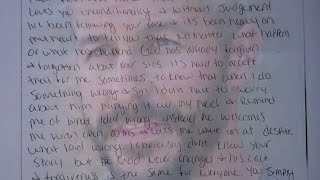 loves you unconditionally & without judgement
I've been following your case & it's been heavy on
my heart to tell you that no matter what happens
or what has happened God has already forgiven
& forgotten about your sins it's hard to accept
that for me sometimes to know that when I do
something wrong & sin I don't have to worry
about him hanging it over my head & remind
me of what I did wrong instead he welcomes
me with open arms & loves me where I'm at despite
what I did wrong. I obviously don't know your
story but God never changes & his love
& forgiveness is the same for everyone. You simply